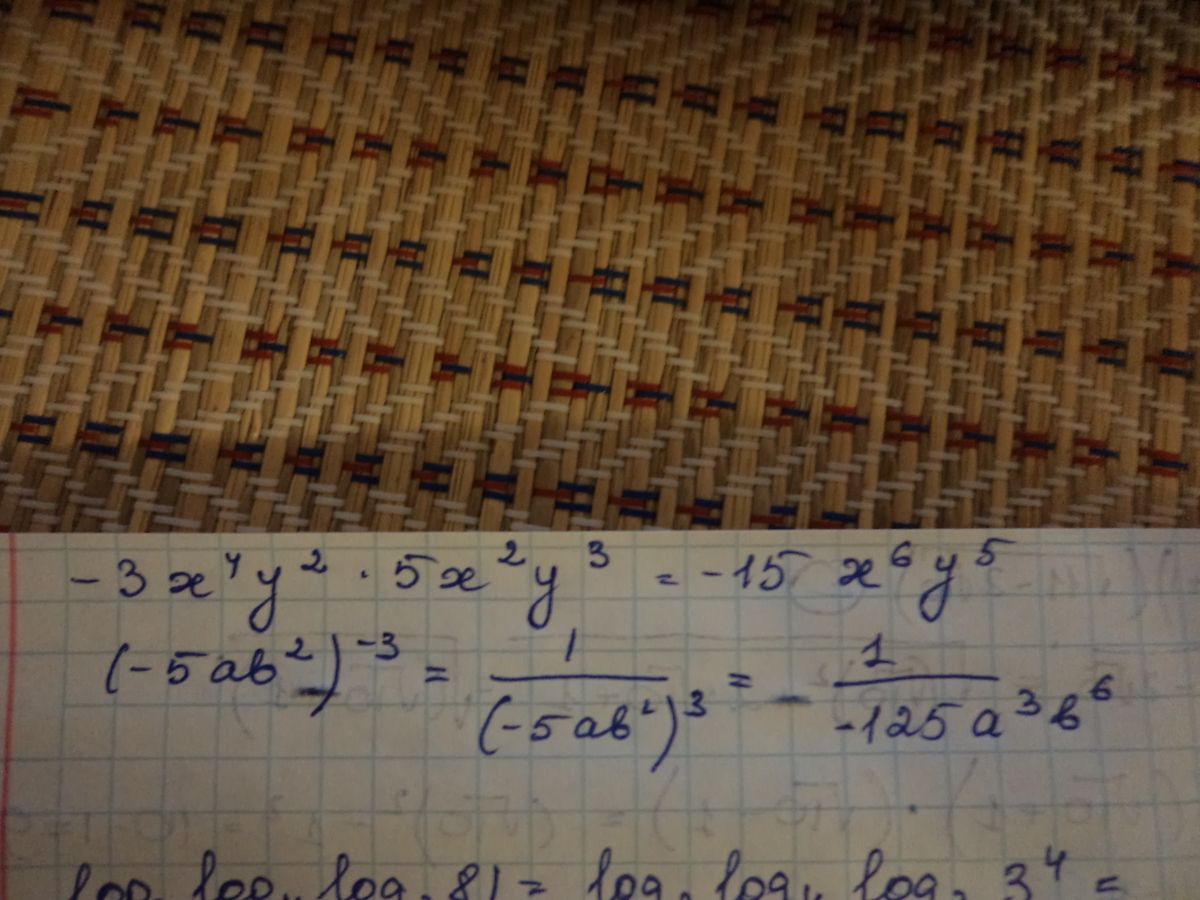 -3x⁴y² · 5x²y³ = -15 x⁶y⁵
(-5ab²)⁻³ = 1/(-5ab²)³ = - 1/-125a³b⁶
log log log 81 = log log log 3⁴ =